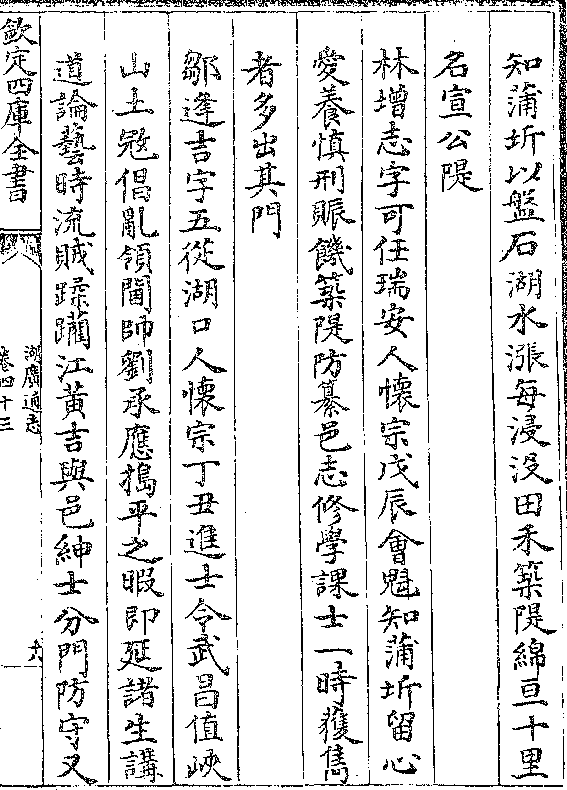 知蒲圻以盤石湖水漲每浸没田禾築隄綿亘十里
名宣公隄
林增志字可任瑞安人懷宗戊辰會魁知蒲圻留心
愛養慎刑賑饑築隄防纂邑志修學課士一時獲雋
者多出其門
鄒逢吉字五從湖口人懷宗丁丑進士令武昌值峽
山土寇倡亂領閫帥劉承應搗平之暇即延諸生講
道論藝時流賊蹂躪江黃吉與邑紳士分門防守又
欽定四庫全書
湖廣通志
卷四十三